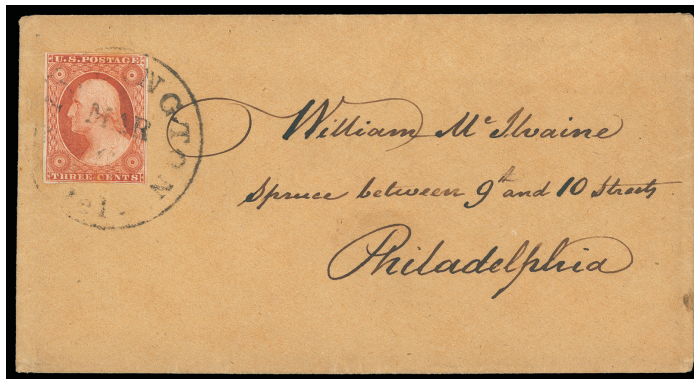 U.S. POSTAGE
THREE CENTS
NGTON
MAR
William Mc Ilvaine
Spruce between 9th and 10 Streets
Philadelphia